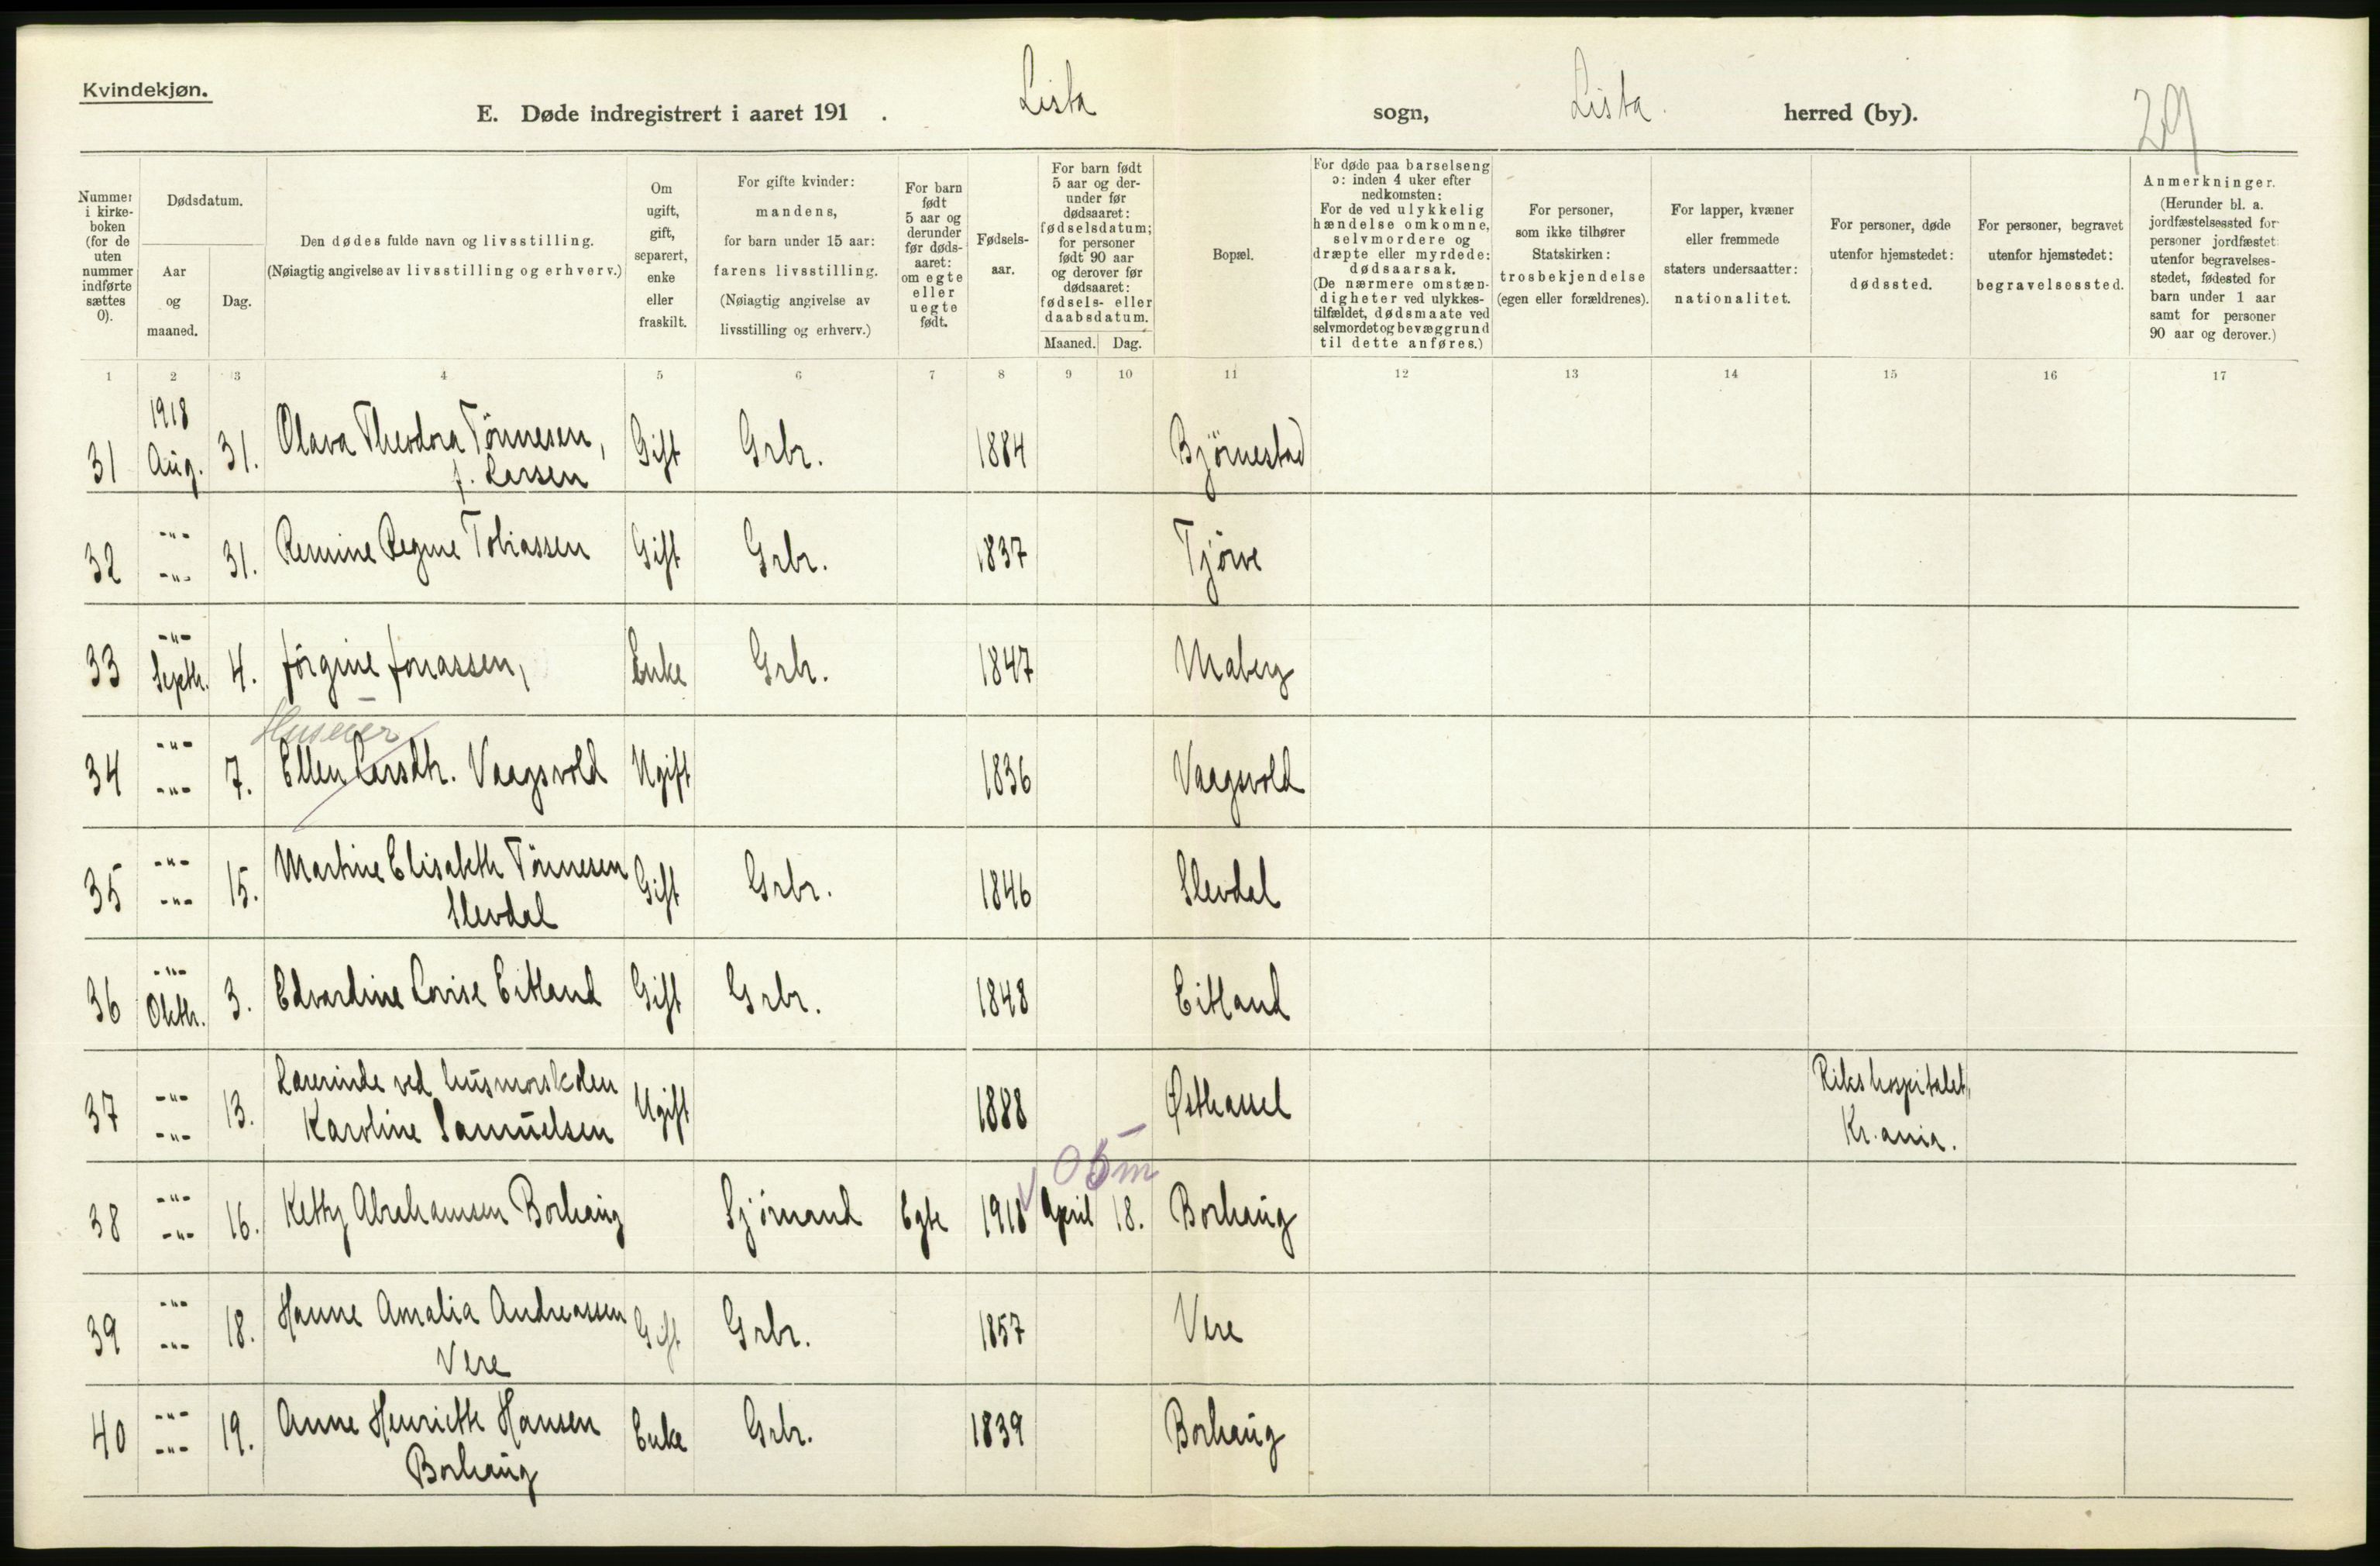 Kvindekjøn.
E. Døde indregistrert i aaret 191 . Lista sogn, Lista herred (by). 29
Nummer i kirkeboken (for de uten nummer indførte sættes 0).
Dødsdatum.
Aar og maaned.
Dag.
Den dødes fulde navn og livsstilling.
(Nøiagtig angivelse av livsstilling og erhverv.)
Om ugift, gift, separert, enke eller fraskilt.
For gifte kvinder: mandens, for barn under 15 aar: farens livsstilling. (Nøiagtig angivelse av livsstilling og erhverv.)
For barn født 5 aar og derunder før dødsaaret: om egte eller uegte født.
Fødselsaar.
For barn født 5 aar og derunder før dødsaaret: fødselsdatum; for personer født 90 aar og derover før dødsaaret: fødsels- eller daabsdatum.
Maaned. Dag.
Bopæl.
For døde paa barselseng ɔ: inden 4 uker efter nedkomsten: For de ved ulykkelig hændelse omkomne, selvmordere og dræpte eller myrdede: dødsaarsak. (De nærmere omstændigheter ved ulykkestilfældet, dødsmaate ved selvmordet og bevæggrund til dette anføres.)
For personer, som ikke tilhører Statskirken: trosbekjendelse (egen eller forældrenes).
For lapper, kvæner eller fremmede staters undersaatter: nationalitet.
For personer, døde utenfor hjemstedet: dødssted.
For personer, begravet utenfor hjemstedet: begravelsessted.
Anmerkninger. (Herunder bl. a. jordfæstelsessted for personer jordfæstet utenfor begravelsesstedet, fødested for barn under 1 aar samt for personer 90 aar og derover.)
1 2 3 4 5 6 7 8 9 10 11 12 13 14 15 16 17
1918
31 Aug. 31. Olava Theodora Tönnesen, Gift Grbr. 1884 Bjørnestad
f. Larsen
32 -"- -"- 31. Regine Tobiassen Gift Grbr. 1837 Tjörve
33 -"- Septbr. 4. Jörgine Jonassen, Enke Grbr. 1847 Maberg
Huseier
34 -"- -"- 7. Ellen Larsdtr. Vaagsvold Ugift 1836 Vaagsvold
35 -"- -"- 15. Martine Elisabeth Tönnesen Gift Grbr. 1846 Slevdal
Slevdal
36 -"- Oktbr. 3. Edvardine Lovise Eitland Gift Grbr. 1848 Eitland
37 -"- -"- 13. Lærerinde ved husmorskolen Ugift 1888 Østhassel Rikshospitalet,
Karoline Samuelsen Kr.ania.
05m
38 -"- -"- 16. Ketty Abrahamsen Borhaug Sjömand Egte 1918 April 18. Borhaug
39 -"- -"- 18. Hanne Amalia Andreassen Gift Grbr. 1857 Vere
Vere
40 -"- -"- 19. Anne Henriette Hansen Enke Grbr. 1839 Borhaug
Borhaug